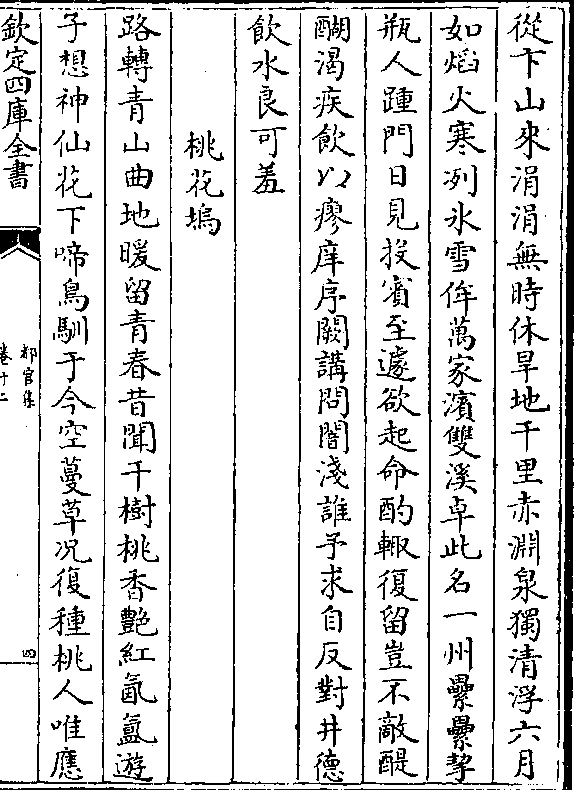 從卞山來涓涓無時休旱地千里赤淵泉獨清浮六月
如熖火寒冽氷雪侔萬家濱雙溪卓此名一州纍纍挈
瓶人踵門日見投賔至遽欲起命酌輙復留豈不敵醍
醐渴疾飲以瘳庠序闕講問闇淺誰予求自反對井德
飲水良可羞
桃花塢
路轉青山曲地暖留青春昔聞千樹桃香艷紅氤氳遊
子想神仙花下啼鳥馴于今空蔓草况復種桃人唯應
欽定四庫全書
都官集
卷十二
四